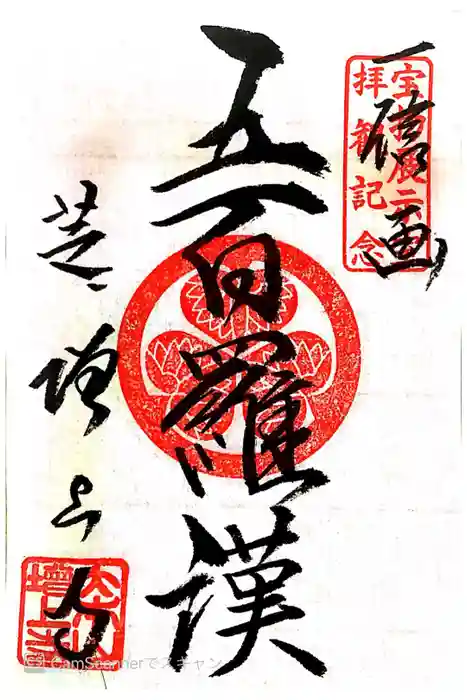 一信画
宝物展示
拝観記念
五百羅漢
芝増上寺
大本山
増上寺
CamScannerでスキャン